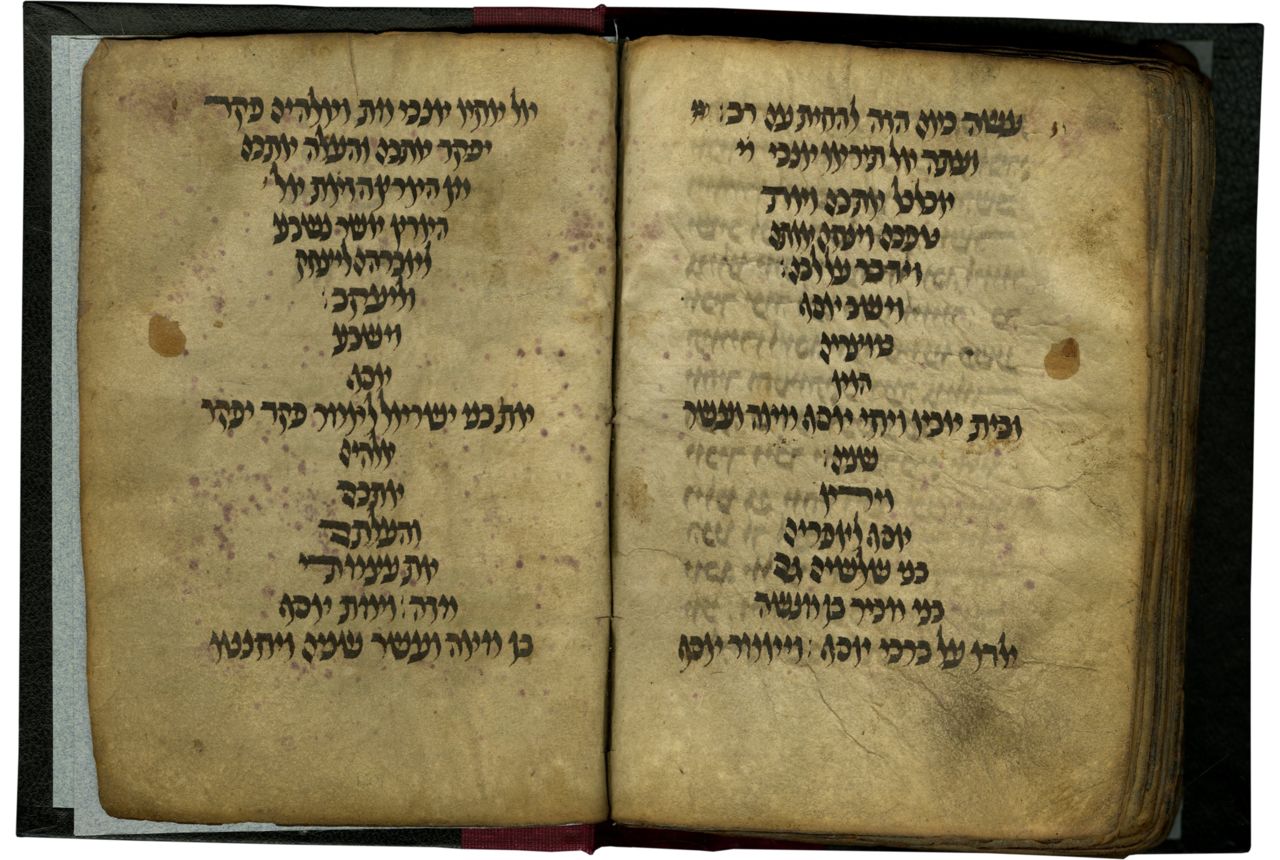 עשה כיום הזה להחית עם רב:
ועתה אל תיראו אנכי
אכלכל אתכם ואת
טפכם וינחם אותם
וידבר על לבם:
וישב יוסף
במצרים
הוא
ובית אביו ויחי יוסף מאה ועשר
שנים:
וירא
יוסף לאפרים
בני שלשים גם
בני מכיר בן מנשה
ילדו על ברכי יוסף: ויאמר יוסף
אל אחיו אנכי מת ואלהים פקד
יפקד אתכם והעלה אתכם
מן הארץ הזאת אל
הארץ אשר נשבע
לאברהם ליצחק
וליעקב:
וישבע
יוסף
את בני ישראל לאמר פקד יפקד
אלהים
אתכם
והעלתם
את עצמותי
מזה: וימת יוסף
בן מאה ועשר שנים ויחנטו